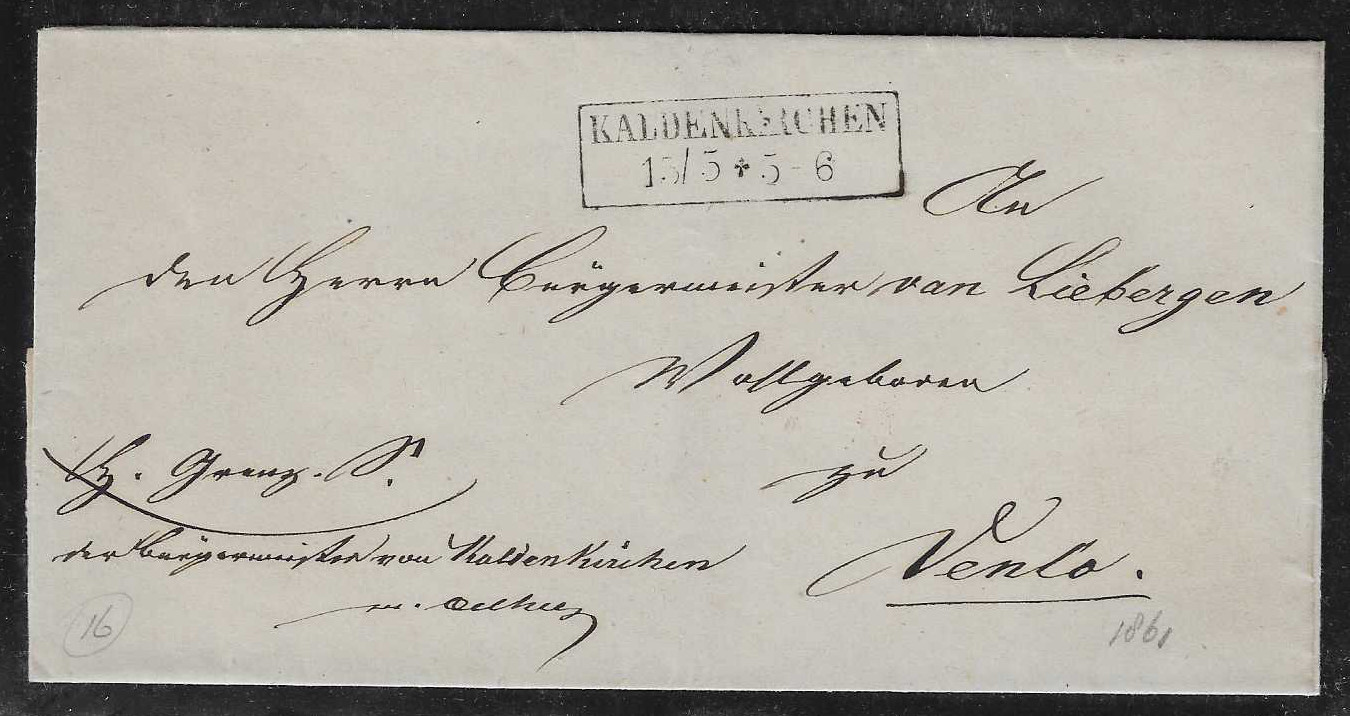 KALDENKIRCHEN
15/5 5-6
An
den Herrn Bürgermeister van Liebergen
Wohlgeboren
H. Grenz. S.
zu
der Bürgermeister von Kaldenkirchen
Venlo.
16
1861